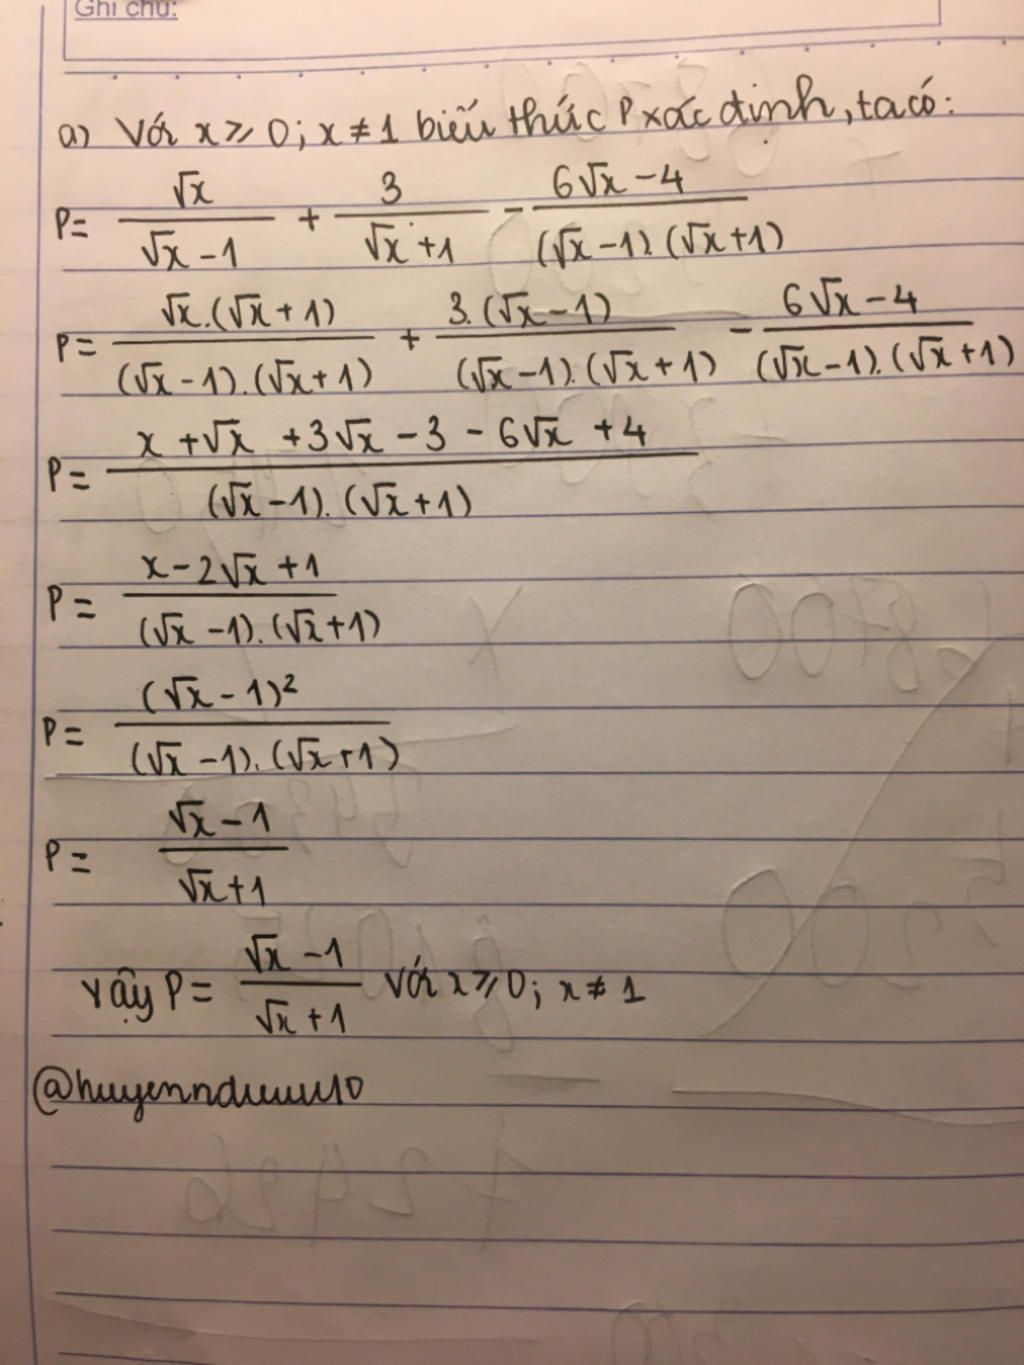 Ghi chú:
a) Với x ≥ 0; x ≠ 1 biểu thức P xác định, ta có:
P = √x / (√x - 1) + 3 / (√x + 1) - (6√x - 4) / ((√x - 1).(√x + 1))
P = √x.(√x + 1) / ((√x - 1).(√x + 1)) + 3.(√x - 1) / ((√x - 1).(√x + 1)) - (6√x - 4) / ((√x - 1).(√x + 1))
P = (x + √x + 3√x - 3 - 6√x + 4) / ((√x - 1).(√x + 1))
P = (x - 2√x + 1) / ((√x - 1).(√x + 1))
P = (√x - 1)² / ((√x - 1).(√x + 1))
P = (√x - 1) / (√x + 1)
Vậy P = (√x - 1) / (√x + 1) với x ≥ 0; x ≠ 1